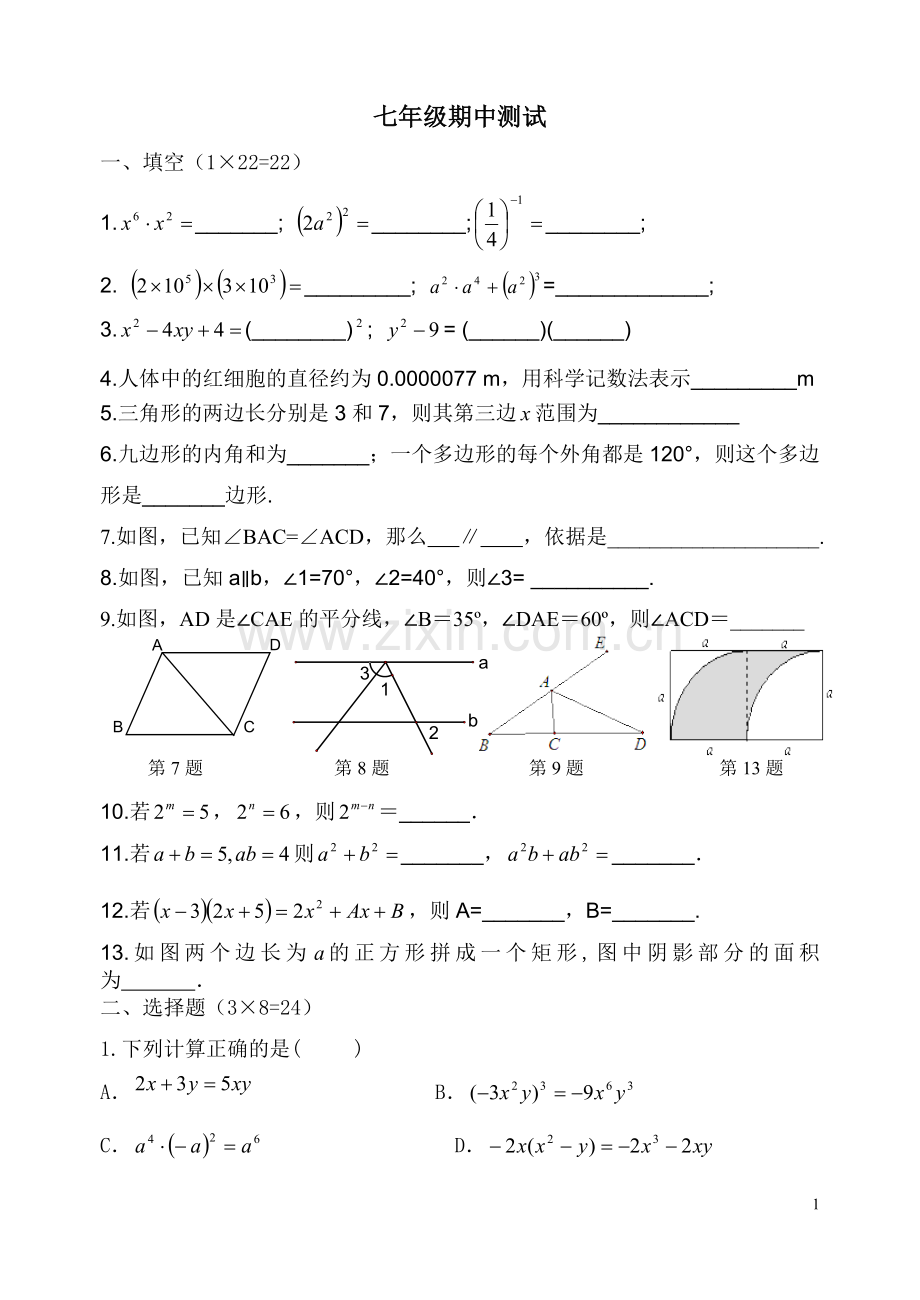 七年级期中测试
一、填空（1×22=22）
1. x⁶·x² =_______; (2a²)² =________; (1/4)⁻¹ =________;
2. (2×10⁵)×(3×10³)=_________; a²·a⁴+(a²)³=_____________;
3. x²−4xy+4=(________)²; y²−9= (______)(______)
4.人体中的红细胞的直径约为 0.0000077 m，用科学记数法表示_________m
5.三角形的两边长分别是 3 和 7，则其第三边 x 范围为____________
6.九边形的内角和为_______；一个多边形的每个外角都是 120°，则这个多边
形是_______边形.
7.如图，已知∠BAC=∠ACD，那么___∥____，依据是____________________.
8.如图，已知 a∥b，∠1=70°，∠2=40°，则∠3= __________.
9.如图，AD 是∠CAE 的平分线，∠B＝35º，∠DAE＝60º，则∠ACD＝_______
www.zixin.com.cn
A D B C
3 1 a b 2
E A B C D
a a a a a a
第 7 题 第 8 题 第 9 题 第 13 题
10.若 2ᵐ=5，2ⁿ=6，则 2ᵐ⁻ⁿ＝______．
11.若 a+b=5,ab=4 则 a²+b²=_______，a²b+ab²=_______．
12.若 (x−3)(2x+5)=2x²+Ax+B，则 A=_______，B=_______.
13.如图两个边长为 a 的正方形拼成一个矩形,图中阴影部分的面积
为______．
二、选择题（3×8=24）
1.下列计算正确的是(    )
A．2x+3y=5xy B．(−3x²y)³=−9x⁶y³
C．a⁴·(−a)²=a⁶ D．−2x(x²−y)=−2x³−2xy
1